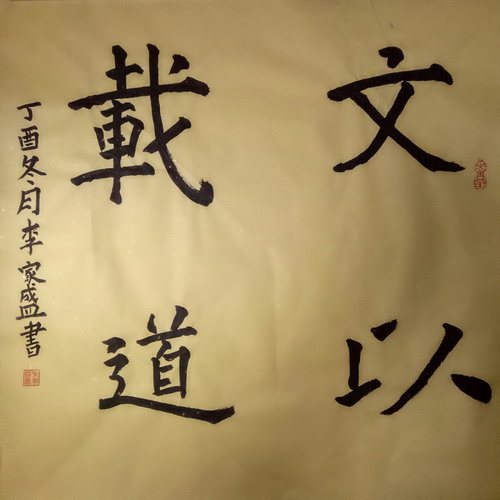 文以
載道
丁酉冬月李家盛書